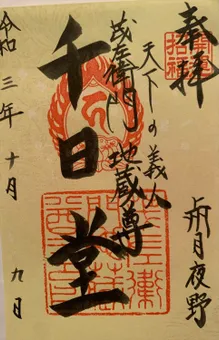 奉拝
上州月夜野
天下の義人
茂左衛門地蔵尊
千日堂
令和三年十月九日